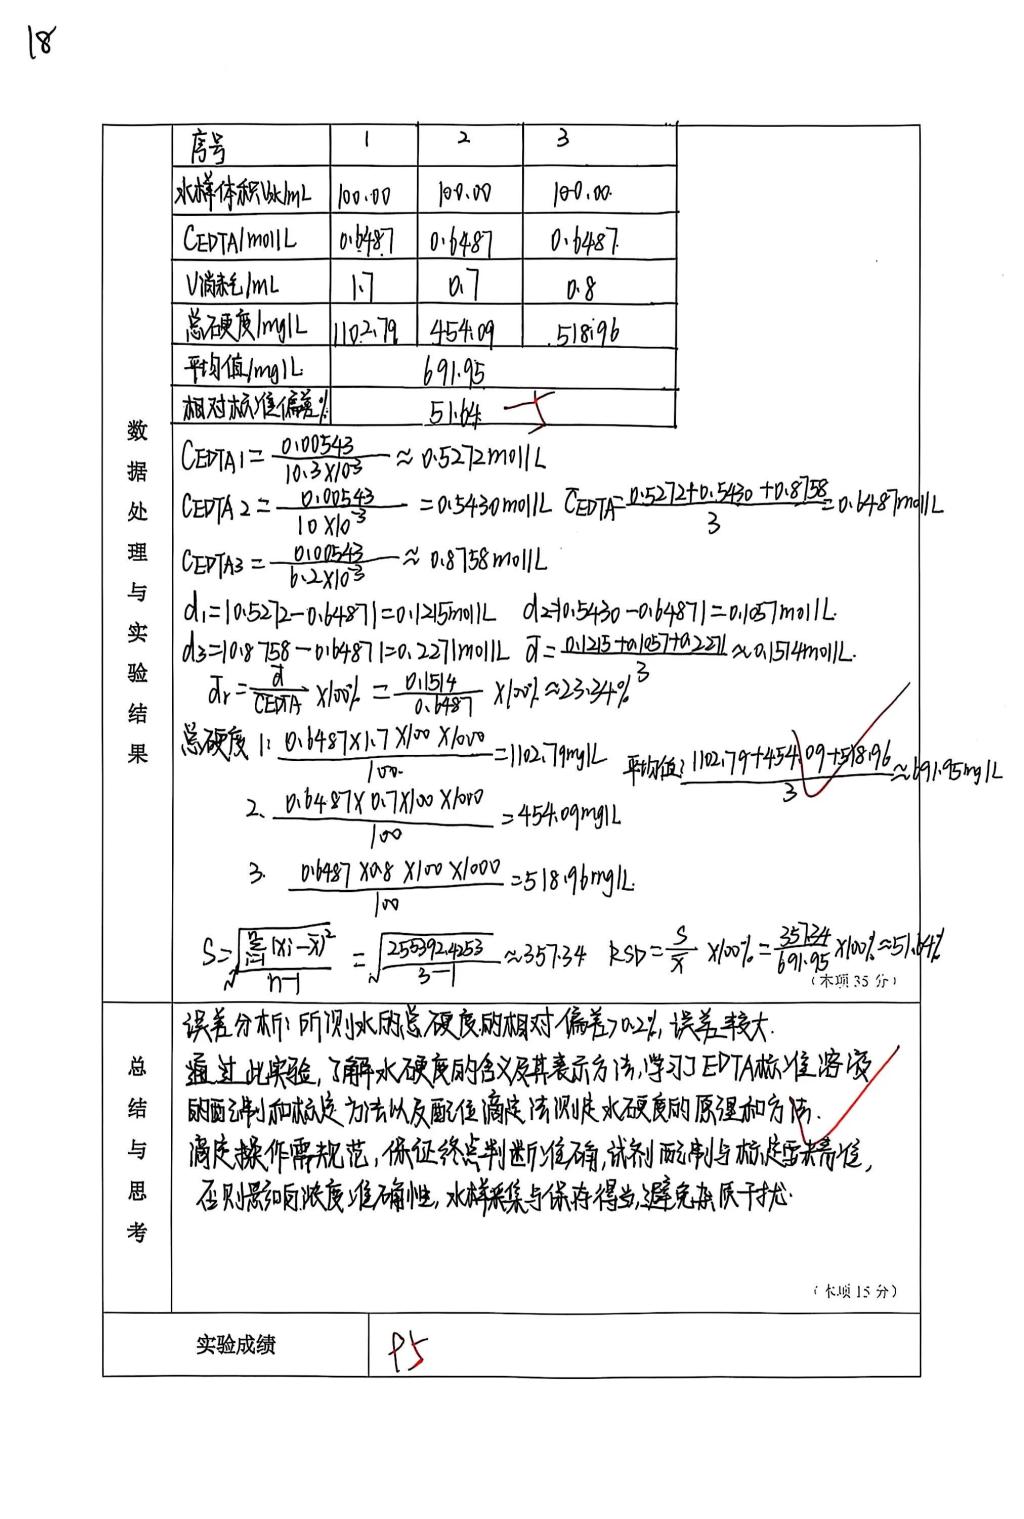 18
序号 1 2 3
水样体积V水/mL 100.00 100.00 100.00
CEDTA/mol/L 0.6487 0.6487 0.6487
V消耗/mL 1.7 0.7 0.8
总硬度/mg/L 1102.79 454.09 518.96
平均值/mg/L 691.95
相对标准偏差% 51.64 -5
数据处理与实验结果
CEDTA1 = 0.00543/10.3×10⁻³ ≈ 0.5272mol/L
CEDTA2 = 0.00543/10×10⁻³ = 0.5430mol/L C̄EDTA = 0.5272+0.5430+0.8758/3 = 0.6487mol/L
CEDTA3 = 0.00543/6.2×10⁻³ ≈ 0.8758mol/L
d₁=|0.5272-0.6487|=0.1215mol/L d₂=|0.5430-0.6487|=0.1057mol/L
d₃=|0.8758-0.6487|=0.2271mol/L d̄=0.1215+0.1057+0.2271/3≈0.1514mol/L
d̄r=d̄/CEDTA×100%=0.1514/0.6487×100%≈23.34%
总硬度1: 0.6487×1.7×100×1000/100=1102.79mg/L 平均值:1102.79+454.09+518.96/3≈691.95mg/L
2. 0.6487×0.7×100×1000/100=454.09mg/L
3. 0.6487×0.8×100×1000/100=518.96mg/L
S=√Σ(xi-x̄)²/n-1=√255392.4253/3-1≈357.34 RSD=S/x̄×100%=357.34/691.95×100%≈51.64%
(本项35分)
总结与思考
误差分析:所测水的总硬度的相对偏差>0.2%,误差较大.
通过此实验,了解水硬度的含义及其表示方法,学习了EDTA标准溶液
的配制和标定方法以及配位滴定法测定水硬度的原理和方法.
滴定操作需规范,保证终点判断准确,试剂配制与标定需精准,
否则影响浓度准确性,水样采集与保存得当,避免杂质干扰.
(本项15分)
实验成绩 95